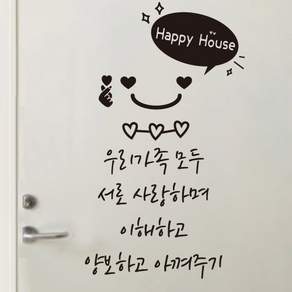 Happy House
우리가족 모두
서로 사랑하며
이해하고
양보하고 아껴주기